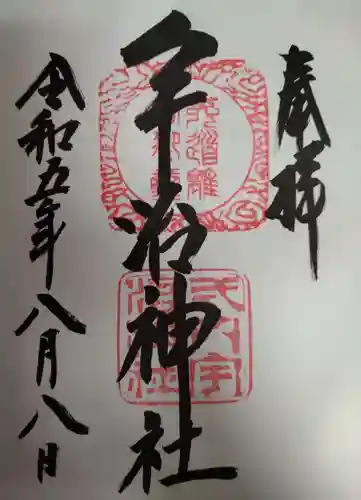 奉拝
宇治神社
令和五年八月八日